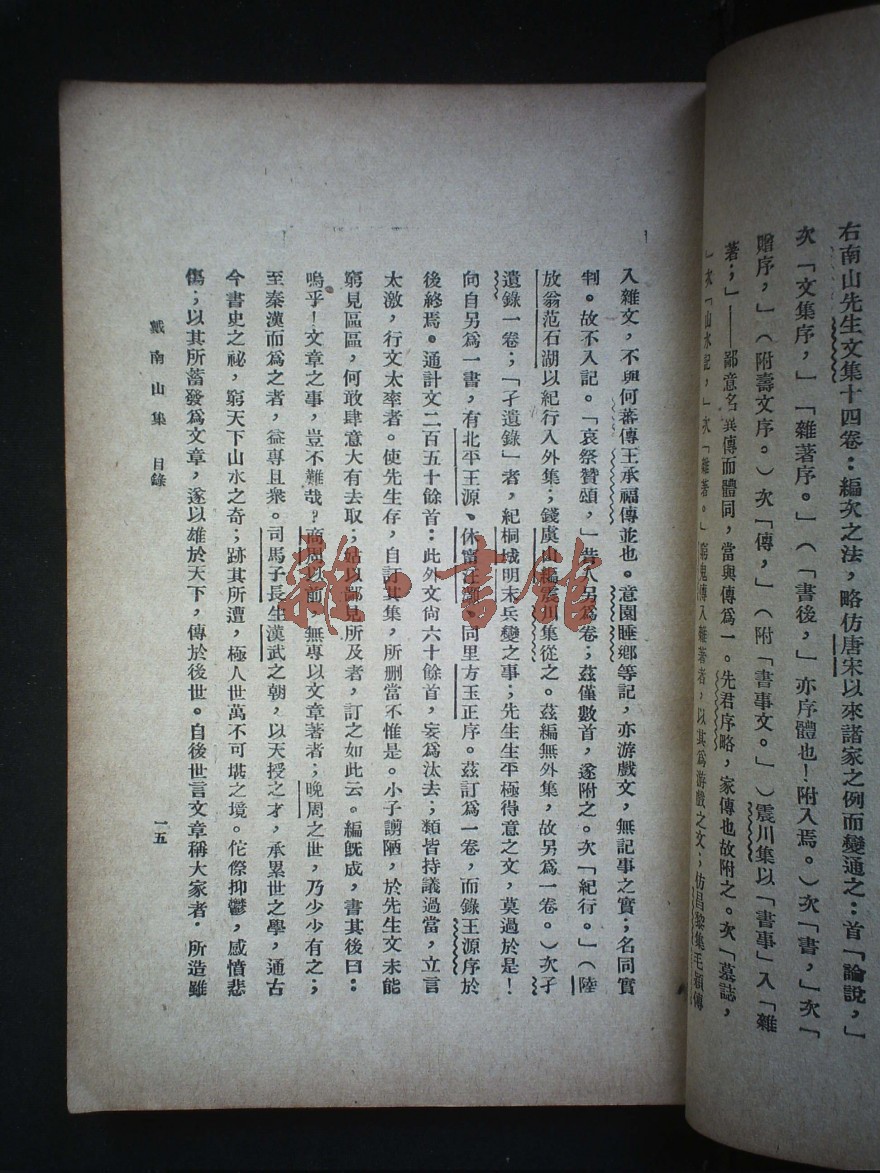 右南山先生文集十四卷：編次之法，略仿唐宋以來諸家之例而變通之：首「論說，」
次「文集序，」「雜著序。」（「書後，」亦序體也！附入焉。）次「書，」次「
贈序，」（附壽文序。）次「傳，」（附「書事文。」）震川集以「書事」入「雜
著；」——鄙意名異傳而體同，當與傳爲一。先君序略，家傳也故附之。次「墓誌，
」次「山水記，」次「雜著。」窮鬼傳入雜著者，以其爲游戲之文；仿昌黎集毛穎傳
入雜文，不與何蕃傳王承福傳並也。意園睡鄉等記，亦游戲文，無記事之實；名同實
判。故不入記。「哀祭贊頌，」昔人另爲卷；茲僅數首，遂附之。次「紀行。」（陸
放翁范石湖以紀行入外集；錢虞山編震川集從之。茲編無外集，故另爲一卷。）次孑
遺錄一卷；「孑遺錄」者，紀桐城明末兵變之事；先生生平極得意之文，莫過於是！
向自另爲一書，有北平王源、休寧汪灝、同里方玉正序。茲訂爲一卷，而錄王源序於
後終焉。通計文二百五十餘首：此外文尙六十餘首，妄爲汰去；類皆持議過當，立言
太激，行文太率者。使先生存，自訂其集，所刪當不惟是。小子謭陋，於先生文未能
窮見區區，何敢肆意大有去取；姑以鄙見所及者，訂之如此云。編旣成，書其後曰：
嗚乎！文章之事，豈不難哉？商周以前，無專以文章著者；晚周之世，乃少少有之；
至秦漢而爲之者，益專且衆。司馬子長生漢武之朝，以天授之才，承累世之學，通古
今書史之祕，窮天下山水之奇；跡其所遭，極人世萬不可堪之境。侘傺抑鬱，感憤悲
傷；以其所蓄發爲文章，遂以雄於天下，傳於後世。自後世言文章稱大家者．所造雖
戴南山集 目錄
一五
雜·書館